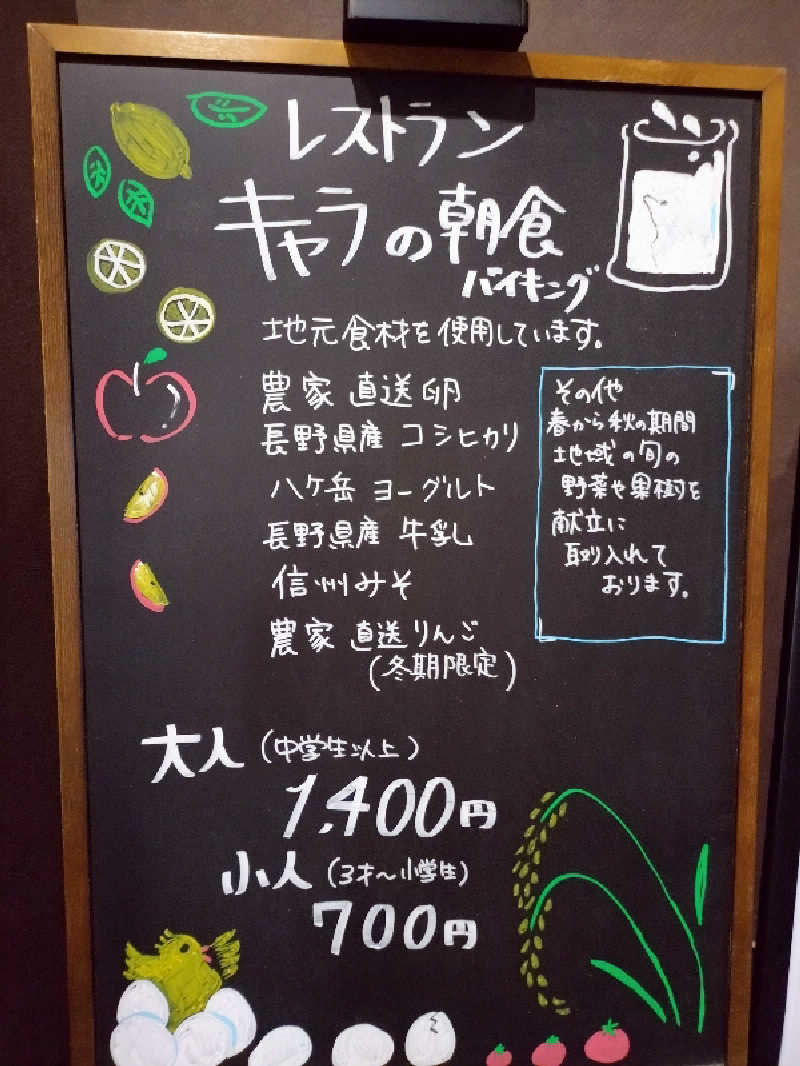 レストラン
キャラの朝食
バイキング
地元食材を使用しています。
農家 直送 卵
長野県産 コシヒカリ
八ヶ岳 ヨーグルト
長野県産 牛乳
信州みそ
農家 直送りんご
(冬期限定)
その他
春から秋の期間
地域の旬の
野菜や果樹を
献立に
取り入れて
おります。
大人(中学生以上)
1,400円
小人(3才～小学生)
700円